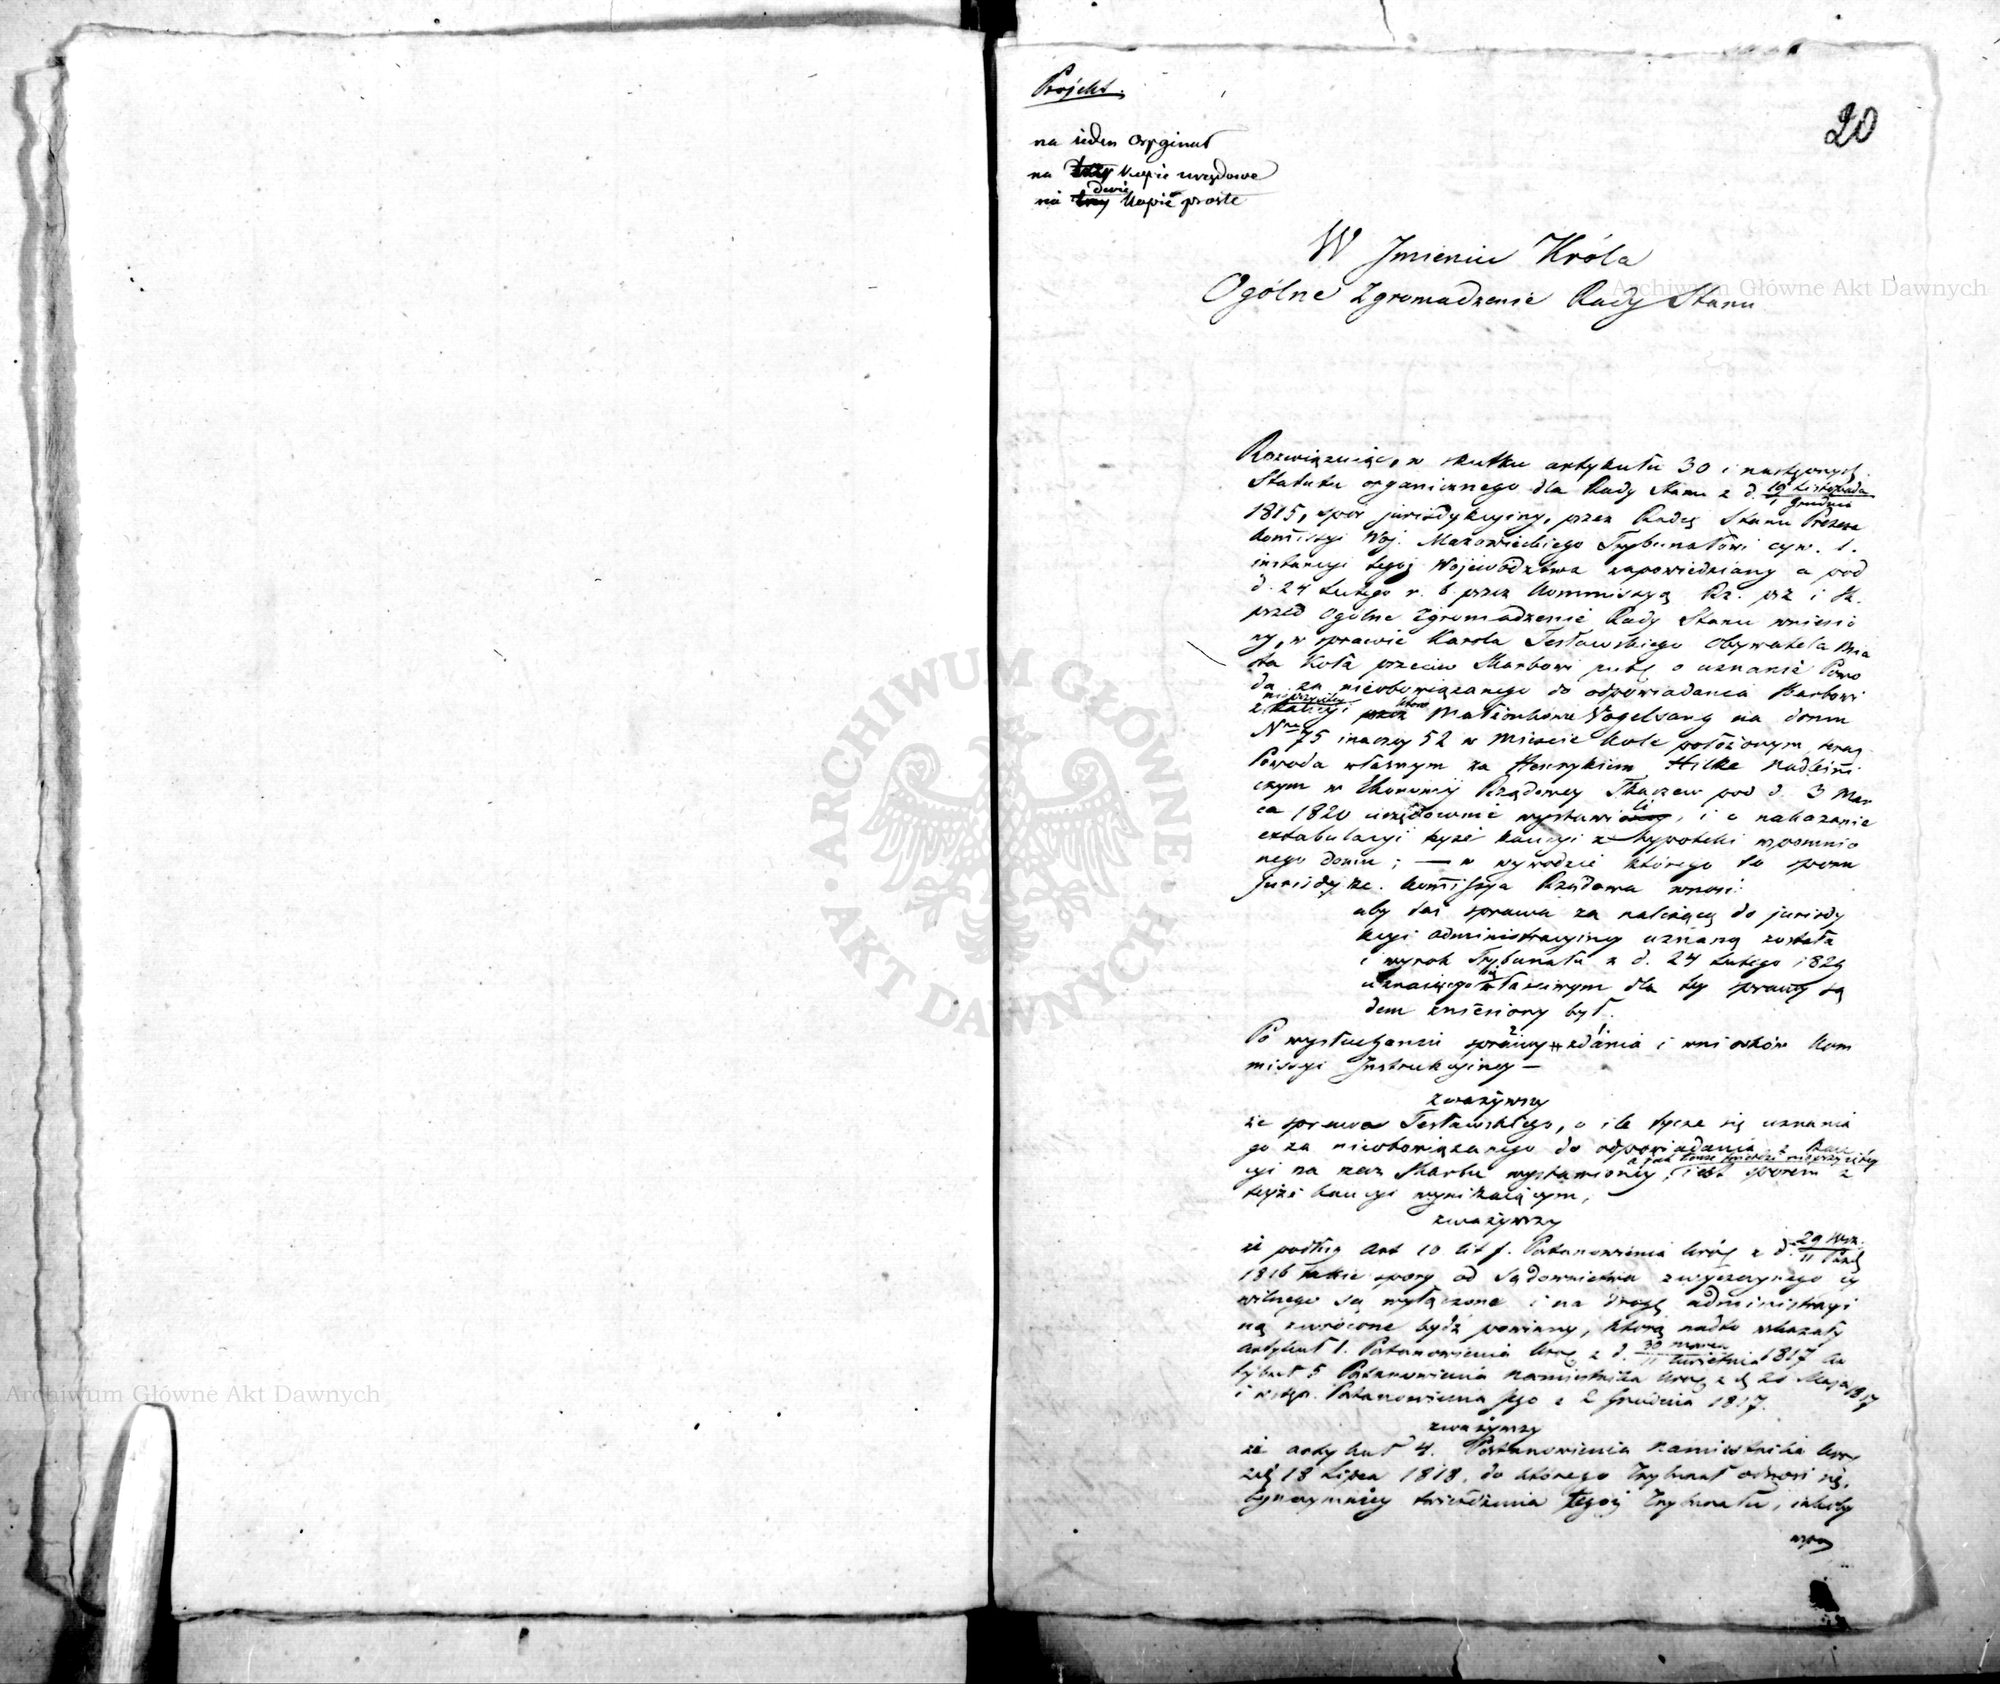 Projekt.
20
na ieden Oryginał
na trzy kopie urzędowe
dwie
na trzy kopie proste
W Jmieniu Króla
Ogólne Zgromadzenie Rady Stanu
Archiwum Główne Akt Dawnych
Rozwiązuiąc, w skutku artykułu 30 i następnych
Statutu organicznego dla Rady Stanu z d. 19 Listopada
1 Grudnia
1815, spór jurisdykcyiny, przez Radcę Stanu Prezesa
Kommissyi Woj. Mazowieckiego Trybunałowi cyw. 1.
instancyi tegoż Województwa zapowiedziany a pod
d. 24 Lutego r. b. przez Kommissyą Rz. prz i Sk.
przed Ogólne Zgromadzenie Rady Stanu wniesio
ny, w sprawie Karola Testawskiego Obywatela Mia
sta Koła przeciw Skarbowi o uznanie Powo
da za nieobowiązanego do odpowiadania Skarbowi
z kaucyi przez Małżonków Vogelsang na domu
Nro 75 inaczey 52 w Mieście Kole położonym, teraz
Powoda własnym za Henrykiem Hilke Nadleśni
czym w Ekonomii Rządowey Tkaczew pod d. 3 Mar
ca 1820 urzędownie i o nakazanie
extabulacyi tejże kaucyi z hypoteki wspomnio
nego domu; — w wywodzie którego to sporu
Jurisdykc. Kommissya Rządowa wnosi:
aby taż sprawa za należącą do jurisdy
kcyi administracyiney uznaną została
i wyrok Trybunału z d. 24 Lutego 1829
uznaiącego się właściwym dla tey sprawy są
dem zniesiony był.
Po wysłuchaniu sprawy zdania i wniosków Kom
missyi Jnstrukcyiney —
zważywszy
że sprawa Testawskiego, o ile tycze się uznania
go za nieobowiązanego do odpowiadania z kau
cyi na rzecz Skarbu wystawioney, iest sporem z
teyże kaucyi wynikaiącym,
zważywszy
iż podług Art 10 lit f. Postanowienia Król z d. 29 Wrz.
11 Paźd
1816 takie spory od Sądownictwa zwyczaynego cy
wilnego są wyłączone i na drogę administracyi
ną zwrócone bydź powinny, którą nadto wskazały
Artykuł 1. Postanowienia Król z d. 30 Marca
11 Kwietnia 1817 Ar
tykuł 5 Postanowienia Namiestnika Król z d 20 Maja 1817
i Postanowienia Jego z 2 Grudnia 1817.
zważywszy
iż artykuł 4. Postanowienia Namiestnika Kró
z d 18 Lipca 1818, do którego Trybunał odnosi się,
bynaymniey twierdzenia tegoż Trybunału, iakoby
ARCHIWUM GŁÓWNE
AKT DAWNYCH
Archiwum Główne Akt Dawnych